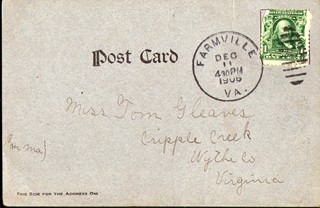 Post Card
FARMVILLE
DEC
11
4-30PM
1906
VA.
Miss Tom Gleaves
Cripple Creek
Wythe Co
Virginia
THIS SIDE FOR THE ADDRESS ONLY